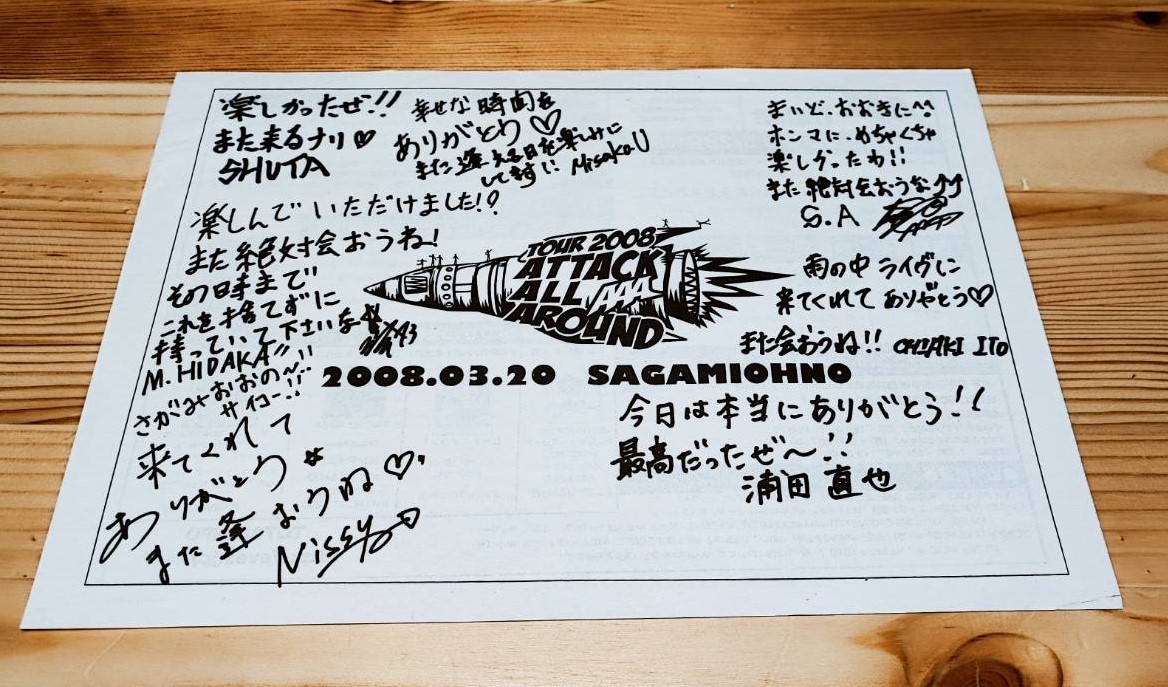 楽しかったぜ!!
また来るナリ♡
SHUTA
幸せな時間を
ありがとう♡
また逢える日を楽しみに
してます!! Misako U
まいど、おおきに^^
ホンマに、めちゃくちゃ
楽しかったわ!!
また絶対会おうな
S.A
楽しんでいただけました!?
また絶対会おうね!
その日まで
これを捨てずに
持っていて下さいな
M.HIDAKA〃
TOUR 2008
ATTACK
ALL AAA
AROUND
2008.03.20 SAGAMIOHNO
雨の中 ライヴに
来てくれて ありがとう♡
また会おうね!! CHIAKI ITO
さがみおおの〜!!
サイコー!!
来てくれて
ありがとう
また逢おうね♡
Nissy
今日は本当にありがとう!!
最高だったぜ〜!!
浦田 直也